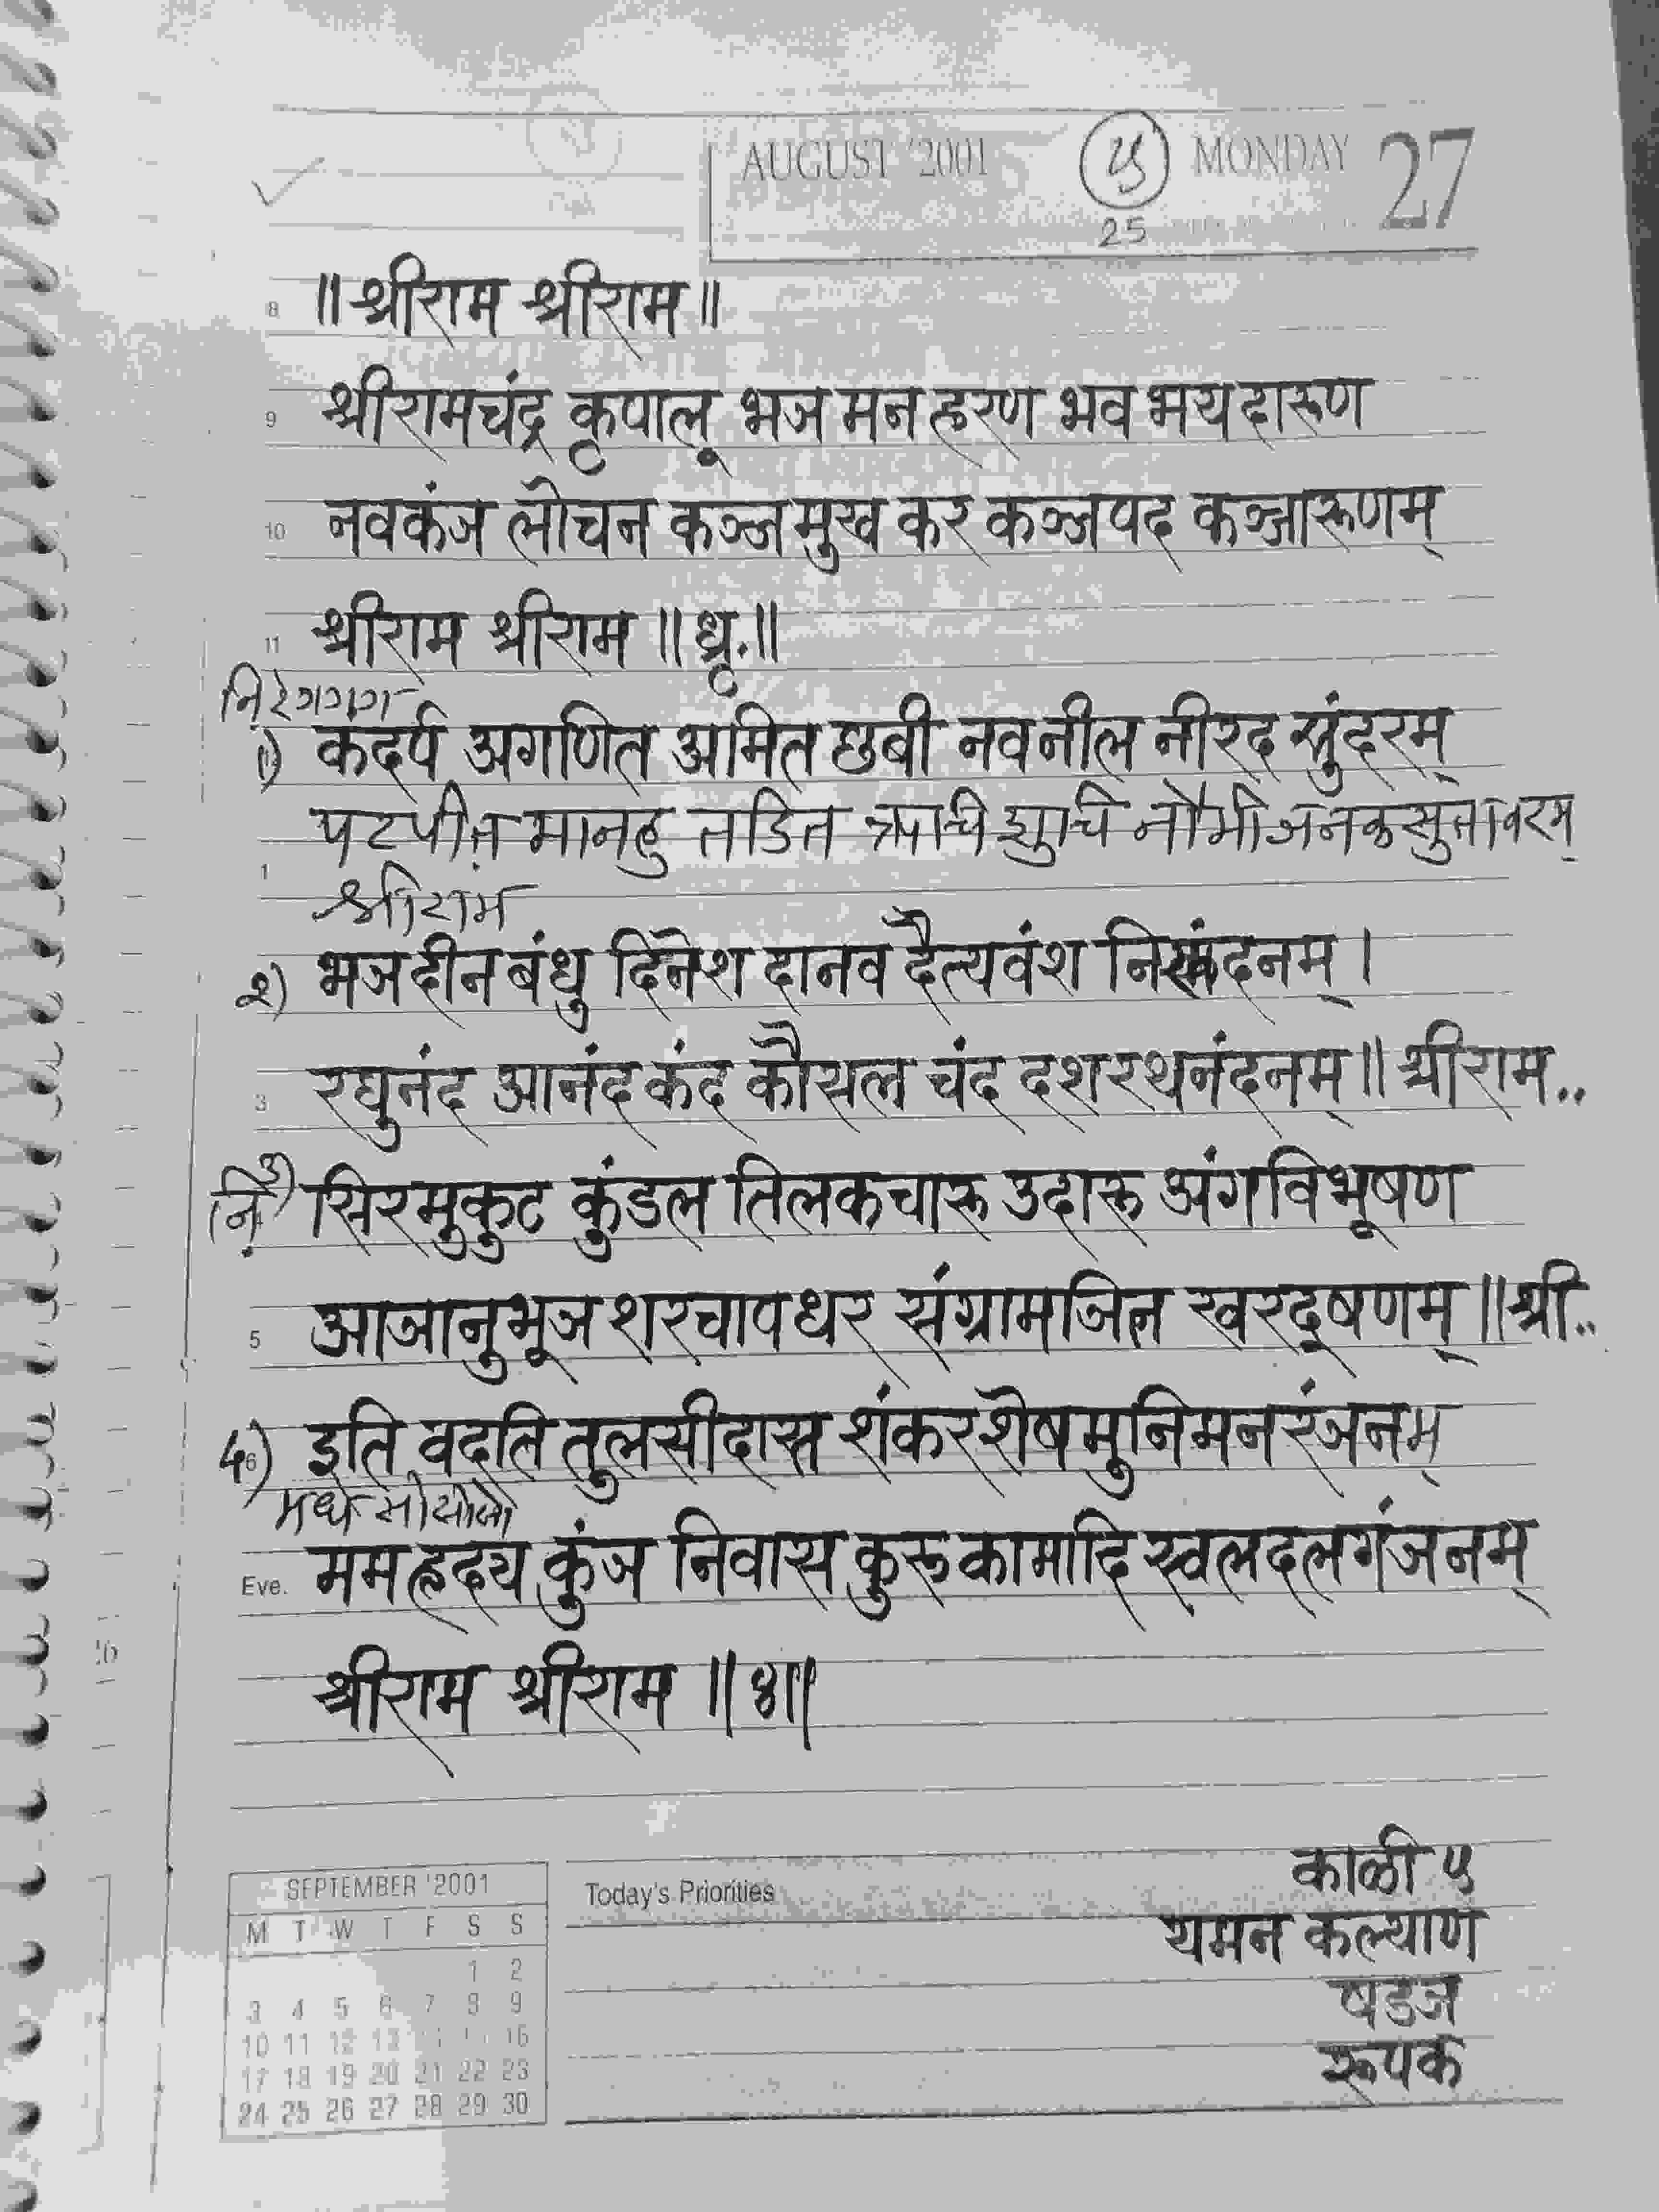 AUGUST '2001 ५ MONDAY 27
25
8 ॥ श्रीराम श्रीराम ॥
9 श्रीरामचंद्र कृपालू भज मन हरण भव भय दारूण
10 नवकंज लोचन कञ्जमुख कर कञ्जपद कञ्जारूणम्
11 श्रीराम श्रीराम ॥ धृ.॥
नि़रेगगग
१) कंदर्प अगणित अमित छबी नवनील नीरद सुंदरम्
पटपीत मानहु तडित रूचि शुचि नौमी जनकसुतावरम्
1 श्रीराम
२) भज दीन बंधु दिनेश दानव दैत्यवंश निकंदनम् ।
3 रघुनंद आनंद कंद कौसल चंद दशरथनंदनम् ॥ श्रीराम..
नि़ ३) सिरमुकुट कुंडल तिलक चारू उदारू अंग विभूषण
5 आजानुभूज शरचापधर संग्रामजित खरदूषणम् ॥ श्री..
४) 6 इति वदति तुलसीदास शंकर शेष मुनिमनरंजनम्
Eve. ममहृदय कुंज निवास कुरू कामादि खलदलगंजनम्
श्रीराम श्रीराम ॥४॥
काळी ५
SEPTEMBER '2001 Today's Priorities
यमन कल्याण
M T W T F S S
1 2
षडज
3 4 5 6 7 8 9
10 11 12 13 16
रूपक
17 18 19 20 21 22 23
24 25 26 27 28 29 30